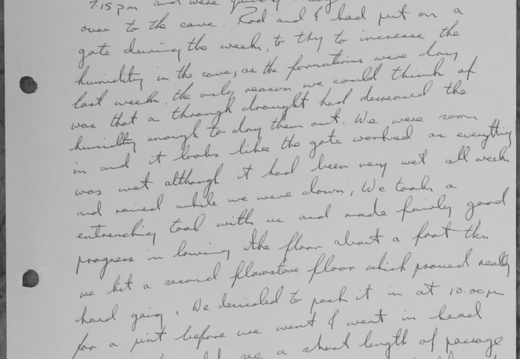 7.15pm and were
over to the cave. Rod and I had put on a
gate during the week, to try to increase the
humidity in the cave, as the formations were dry
last week. the only reason we could think of
was that a through draught had decreased the
humidity enough to dry them out. We were soon
in and it looks like the gate worked as everything
was wet although it had been very wet all week
and rained while we were down. We took a
entrenching tool with us and made fairly good
progress in lowering the floor about a foot then
we hit a second flowstone floor which proved really
hard going. We decided to pack it in at 10.00pm
for a pint before we went I went in lead
a short length of passage